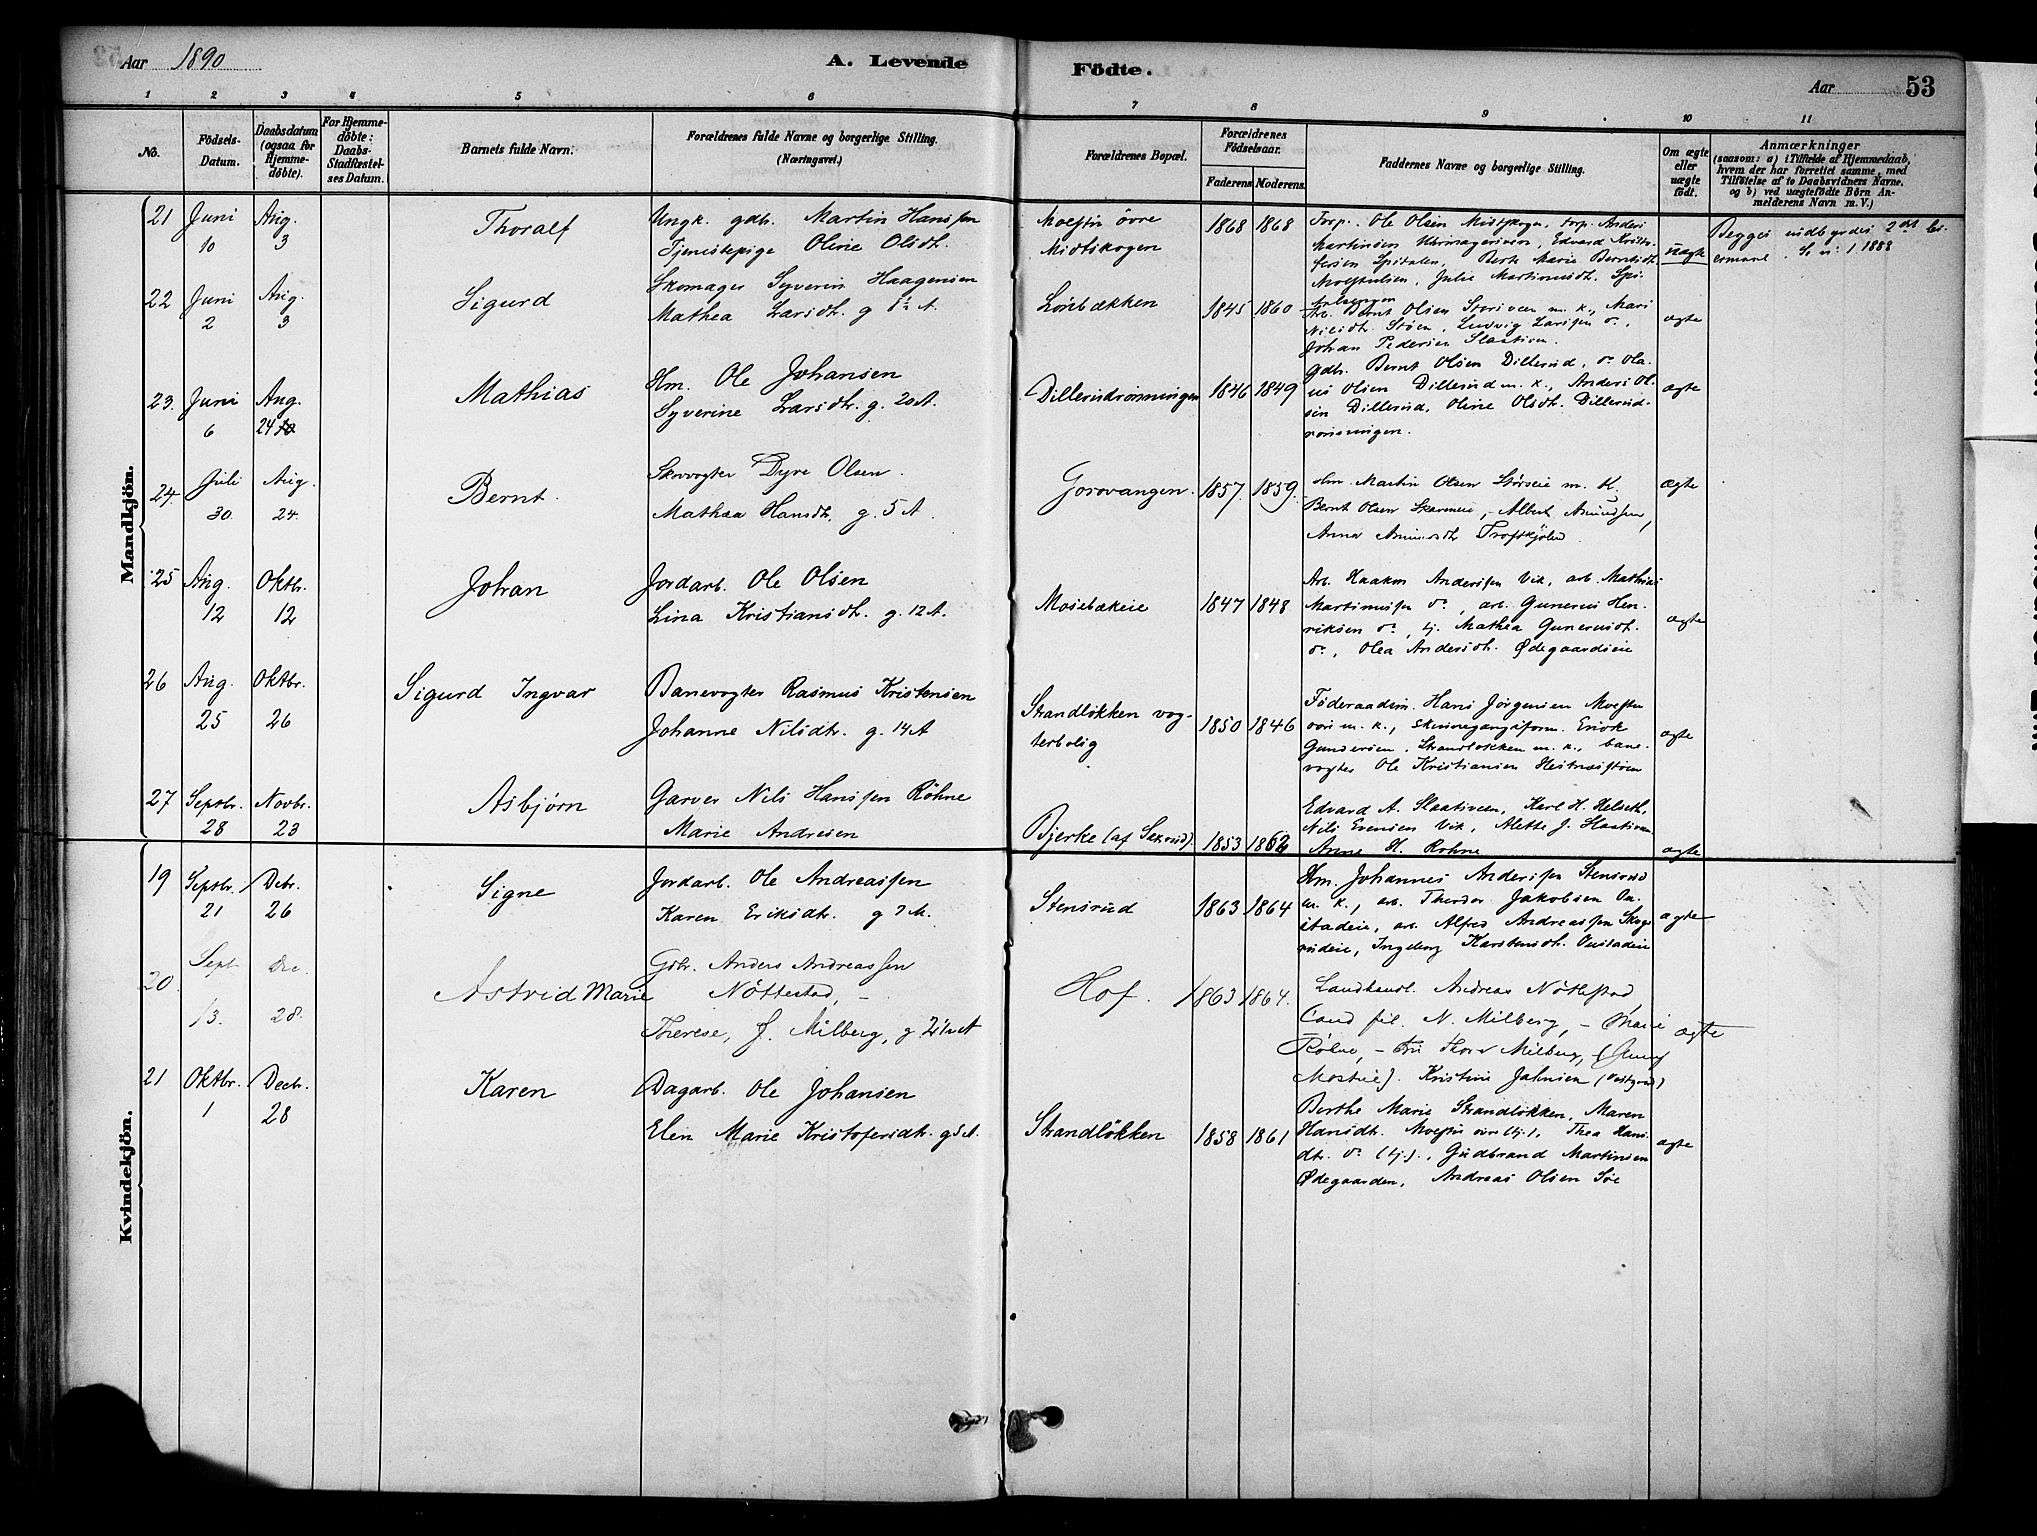 Aar 1890
A. Levende Födte.
Aar 53
1 2 3 4 5 6 7 8 9 10 11
No.
Födsels-Datum.
Daabsdatum (ogsaa for Hjemme-döbte).
For Hjemme-döbte: Daabs-Stadfæstel-ses Datum.
Barnets fulde Navn:
Forældrenes fulde Navne og borgerlige Stilling. (Næringsvei.)
Forældrenes Bopæl.
Forældrenes Födselsaar.
Faderens Moderens.
Faddernes Navne og borgerlige Stilling.
Om ægte eller uægte födt.
Anmærkninger
(saasom: a) i Tilfælde af Hjemmedaab,
hvem der har forrettet samme, med
Tilföielse af to Daabsvidners Navne,
og b) ved uægtefödte Börn An-
melderens Navn m. V.)
Mandkjön.
21 Juni 10 Aug. 3 Thoralf
Ungk. gdb. Martin Hanssen
Tjenestepige Oline Olsdt.
Moestu övre
Midtskogen
1868 1868
Forp. Ole Olsen Midtskogen, forp. Anders
Martinsen
Edvard Kristo-
fersen Spitalen, Berte Marie Berntsdt.
Julie Martinusdt. Spi-
talsengen
uægte
Begges indbyrdes 2det le-
ermaal. 1888
22 Juni 2 Aug. 3 Sigurd
Skomager Syverin Haagensen
Mathea Larsdt. g 8½ A.
Lönbækken
1845 1860
Arb. Bernt Olsen Storsveen m. k., Mari
Nilsdt. Støen, Ludvig Larssen do.,
Johan Pedersen Slaatten.
ægte
23. Juni 6 Aug. 24 Mathias
Hm. Ole Johansen
Syverine Larsdtr. g. 20 A.
Dillerudrønningen
1846 1849
Gdb. Bernt Olsen Dillerud, do Ola-
us Olsen Dillerud m. k., Anders Ol-
sen Dillerud, Oline Olsdt. Dillerud-
rønningen.
ægte
24. Juli 30. Aug. 24. Bernt.
Skovvogter Dyre Olsen.
Mathea Hansdt. g. 5 A.
Gorovangen.
1857. 1859.
Hm. Martin Olsen Störseie m. K.
Bernt Olsen, Albert Amundsen,
Anna Amundsdt.
ægte
25 Aug. 12 Oktbr. 12 Johan
Jordarb. Ole Olsen
Lina Kristiansdt. g. 12 A.
Mosebækeie
1847 1848
Arb. Haakon Anderssen Vik, arb. Mathias
Martinussen do., arb. Gunerius Hen-
riksen do., tj. Mathea Guneriusdt.
do., Olea Andersdt. Ødegaardseie
ægte
26 Aug. 25 Oktbr. 26 Sigurd Ingvar
Banevogter Rasmus Kristensen
Johanne Nilsdtr. g. 14 A
Strandløkken vog-
terbolig
1850 1846
Føderaadsm. Hans Jørgensen Moestu
övre m. k., skinnegangsform. Enok
Gundersen Strandløkken m. k., bane-
vogter Ole Kristiansen
ægte
27 Septbr. 28 Novbr. 23 Asbjørn
Garver Nils Hanssen Röhne
Marie Andresen
Bjerke (af Sexrud).
1853 1862
Edvard A. Slaatsveen, Karl H. Helseth,
Nils Evensen Vik, Alette J.
Anne H. Rohne
ægte
Kvindekjön.
19 Septbr. 21 Debr. 26 Signe
Jordarb. Ole Andreassen
Karen Eriksdtr. g 7 A.
Stensrud
1863 1864
Hm. Johannes Anderssen Stensrud
m. k., arb. Theodor Jakobsen On-
stadeie, arb. Alfred Andreassen Skogs-
rudeie, Ingeborg Karstensdt. Onstadeie
ægte
20. Sept 13. Dec. 28. Astrid Marie
Gdbr. Anders Andreassen
Nöttestad, -
Therese, J. Milberg, g. 2½ A
Hof.
1863 1864.
Landhandl. Andreas Nöttestad
Cand fil. N. Milberg, - Marie
Röhne, - Frk Thora Milberg,
Kristine Jahnsen
ægte
21 Oktbr. 1 Decbr. 28 Karen
Dagarb. Ole Johansen
Elen Marie Kristofersdtr. g 5 A.
Strandløkken
1858 1861
Berthe Marie Strandløkken, Maren
Hansdt. Moestu övre (tj.), Thea Hans-
dtr. do (tj.), Gudbrand Martinsen
Ødegaarden, Andreas Olsen Söe
ægte